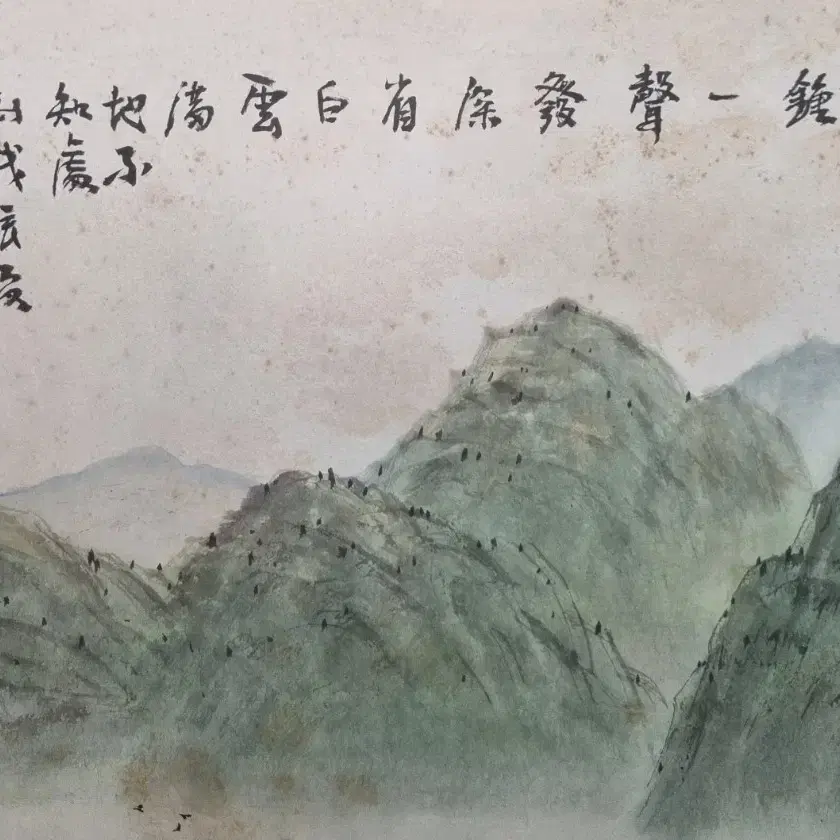 鐘一聲發深省白雲滿地不知處